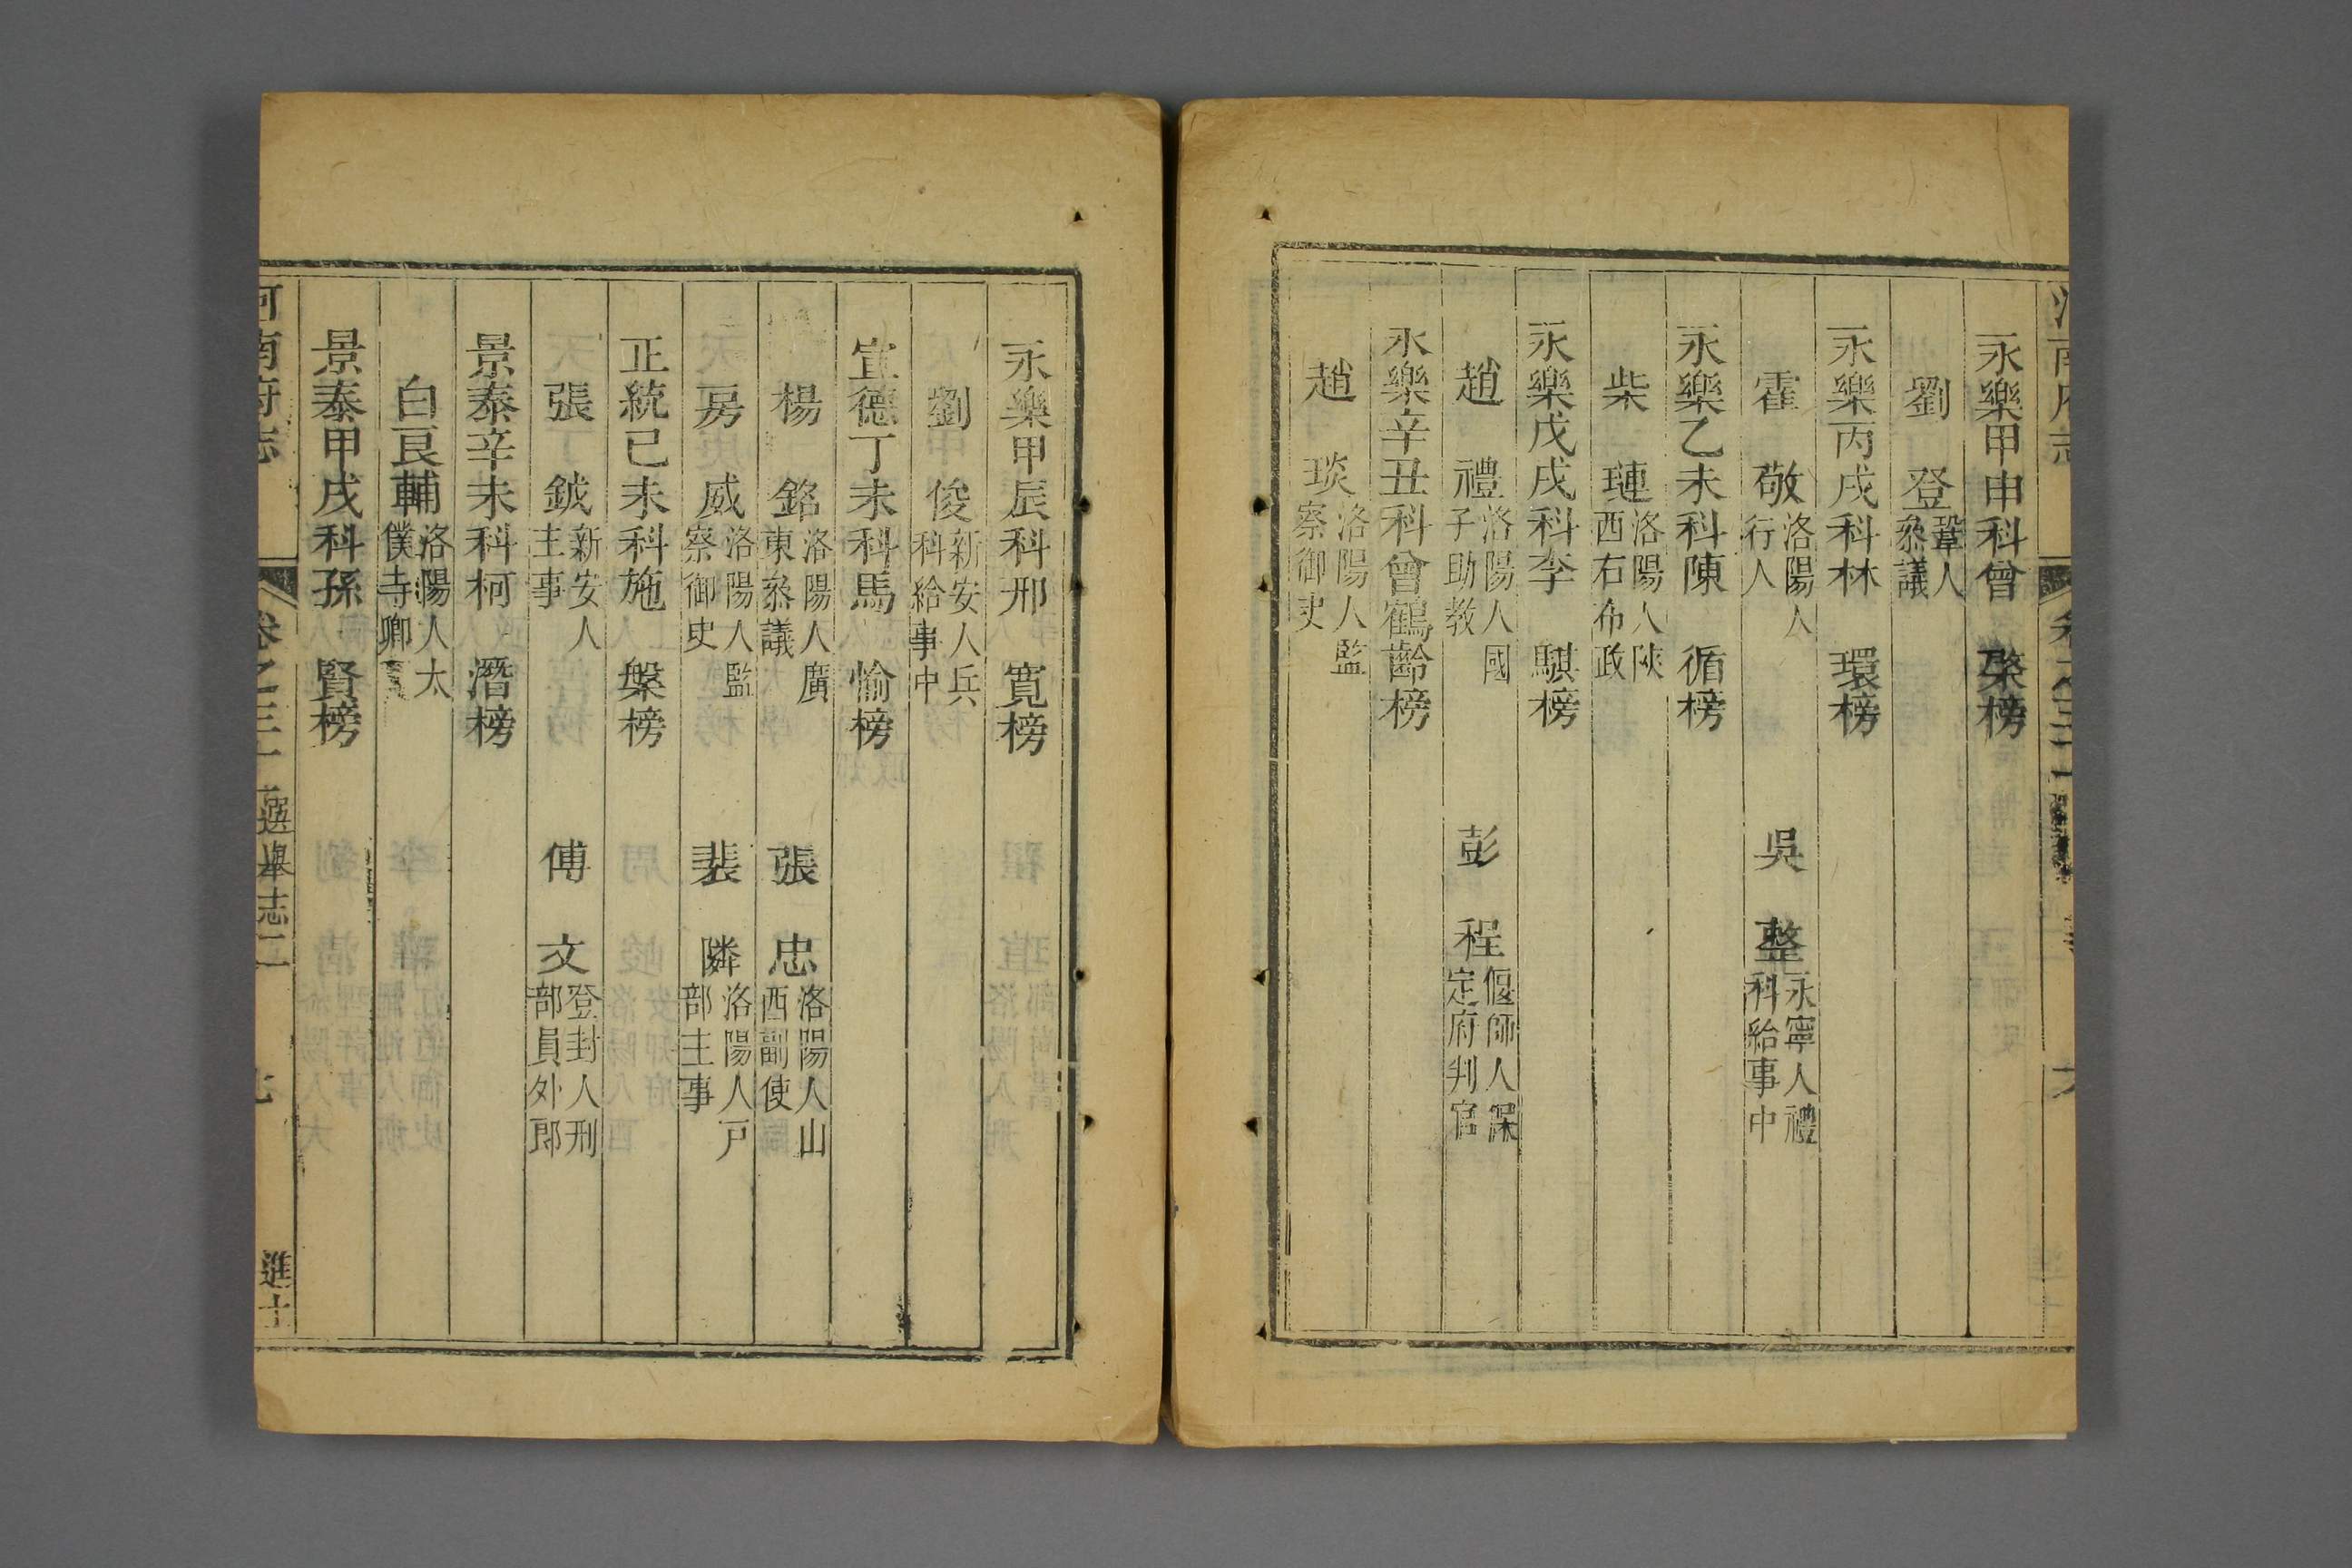 永樂甲申科曾棨榜
劉登鞏人叅議
永樂丙戌科林環榜
霍敬洛陽人行人 吳整永寧人禮科給事中
永樂乙未科陳循榜
柴璉洛陽人陝西右布政
永樂戊戌科李騏榜
趙禮洛陽人國子助教 彭程偃師人保定府判官
永樂辛丑科曾鶴齡榜
趙琰洛陽人監察御史
永樂甲辰科邢寬榜
劉俊新安人兵科給事中
宣德丁未科馬愉榜
楊銘洛陽人廣東叅議 張忠洛陽人山西副使
房威洛陽人監察御史 裴隣洛陽人戸部主事
正統已未科施槃榜
張鉞新安人主事 傅文登封人刑部員外郎
景泰辛未科柯潛榜
白良輔洛陽人太僕寺卿
景泰甲戌科孫賢榜
河南府志 卷之三十 選舉志二 進士